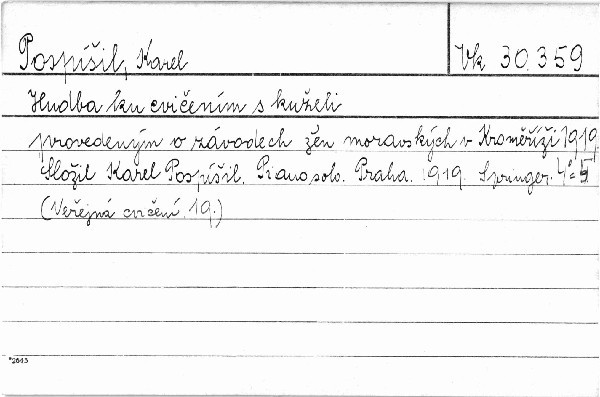 Pospíšil, Karel
Vk 30.359
Hudba ku cvičením s kuželi
provedeným o závodech žen moravských v Kroměříži 1919
Složil Karel Pospíšil. Piano solo. Praha. 1919. Springer. 4°
(Veřejná cvičení. 19.)
*2643